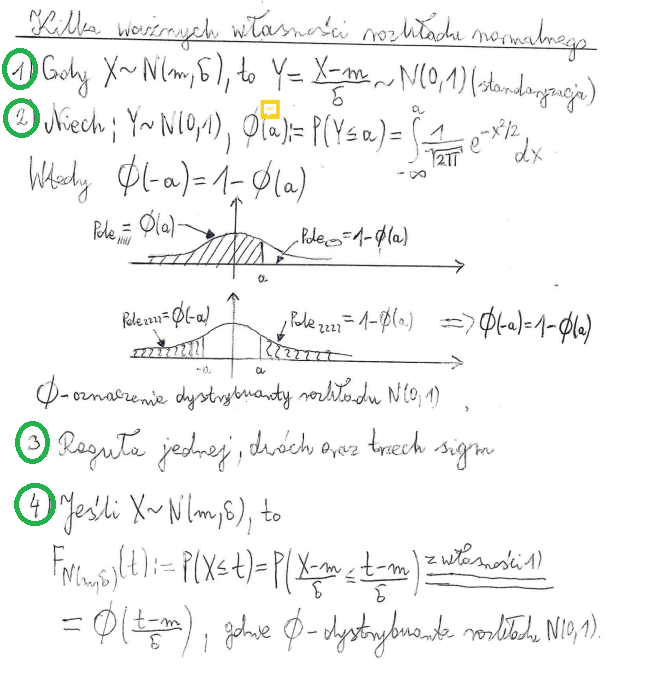 Kilka ważnych własności rozkładu normalnego
1) Gdy X~N(m,δ), to Y = (X-m)/δ ~ N(0,1) (standaryzacja)
2) Niech: Y~N(0,1), ϕ(a) := P(Y≤a) = ∫_{-∞}^{a} 1/√(2π) e^{-x²/2} dx
Wtedy ϕ(-a) = 1-ϕ(a)
Pole = ϕ(a)
Pole = 1-ϕ(a)
a
Pole = ϕ(-a)
Pole = 1-ϕ(a)
=> ϕ(-a) = 1-ϕ(a)
-a a
ϕ-oznaczenie dystrybuanty rozkładu N(0,1)
3 Reguła jednej, dwóch oraz trzech sigm
4) Jeśli X~N(m,δ), to
F_{N(m,δ)}(t) := P(X≤t) = P((X-m)/δ ≤ (t-m)/δ) z własności 1)
= ϕ((t-m)/δ), gdzie ϕ-dystrybuanta rozkładu N(0,1).